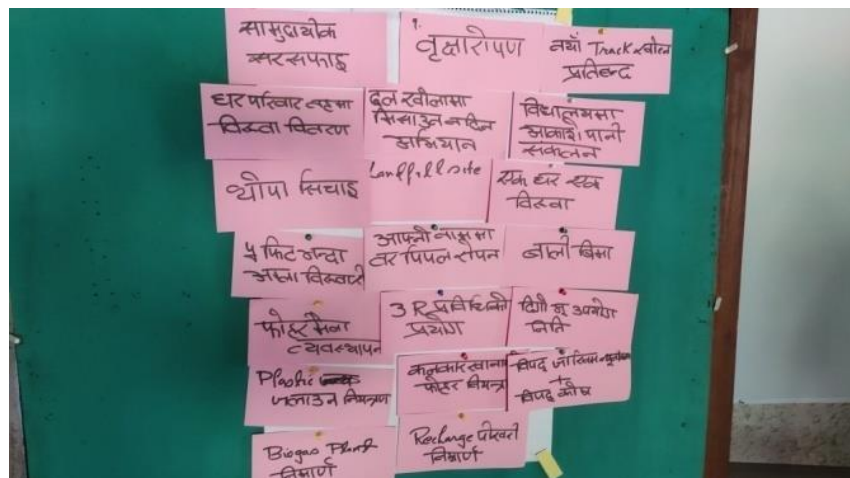 सामुदायीक
सरसफाइ
१.
वृक्षारोपण
नयाँ Track खोल्न
प्रतिबन्द
घर परिवार
विरुवा वितरण
अभियान
विद्यालयमा
आकाशे पानी
संकलन
थोपा सिचाइ
Landfill site
एक घर एक
विरुवा
५ फिट भन्दा
अग्ला
आफ्नो नाममा
वर पिपल रोपन
बाली बिमा
फोहर मैला
व्यवस्थापन
3 R प्रविधिको
प्रयोग
दिगो भू उपयोग
निति
Plastic
जलाउन नियन्त्रण
फोहर
विपद् जोखिम
+
विपद् कोष
Biogas Plant
निमार्ण
Recharge पोखरी
निमार्ण